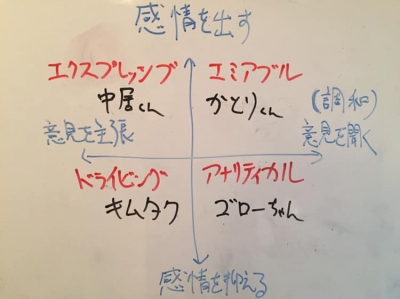 感情を出す
エクスプレッシブ
エミアブル
中居くん
かとりくん
(調和)
意見を主張
意見を聞く
ドライビング
アナリティカル
キムタク
ゴローちゃん
感情を抑える